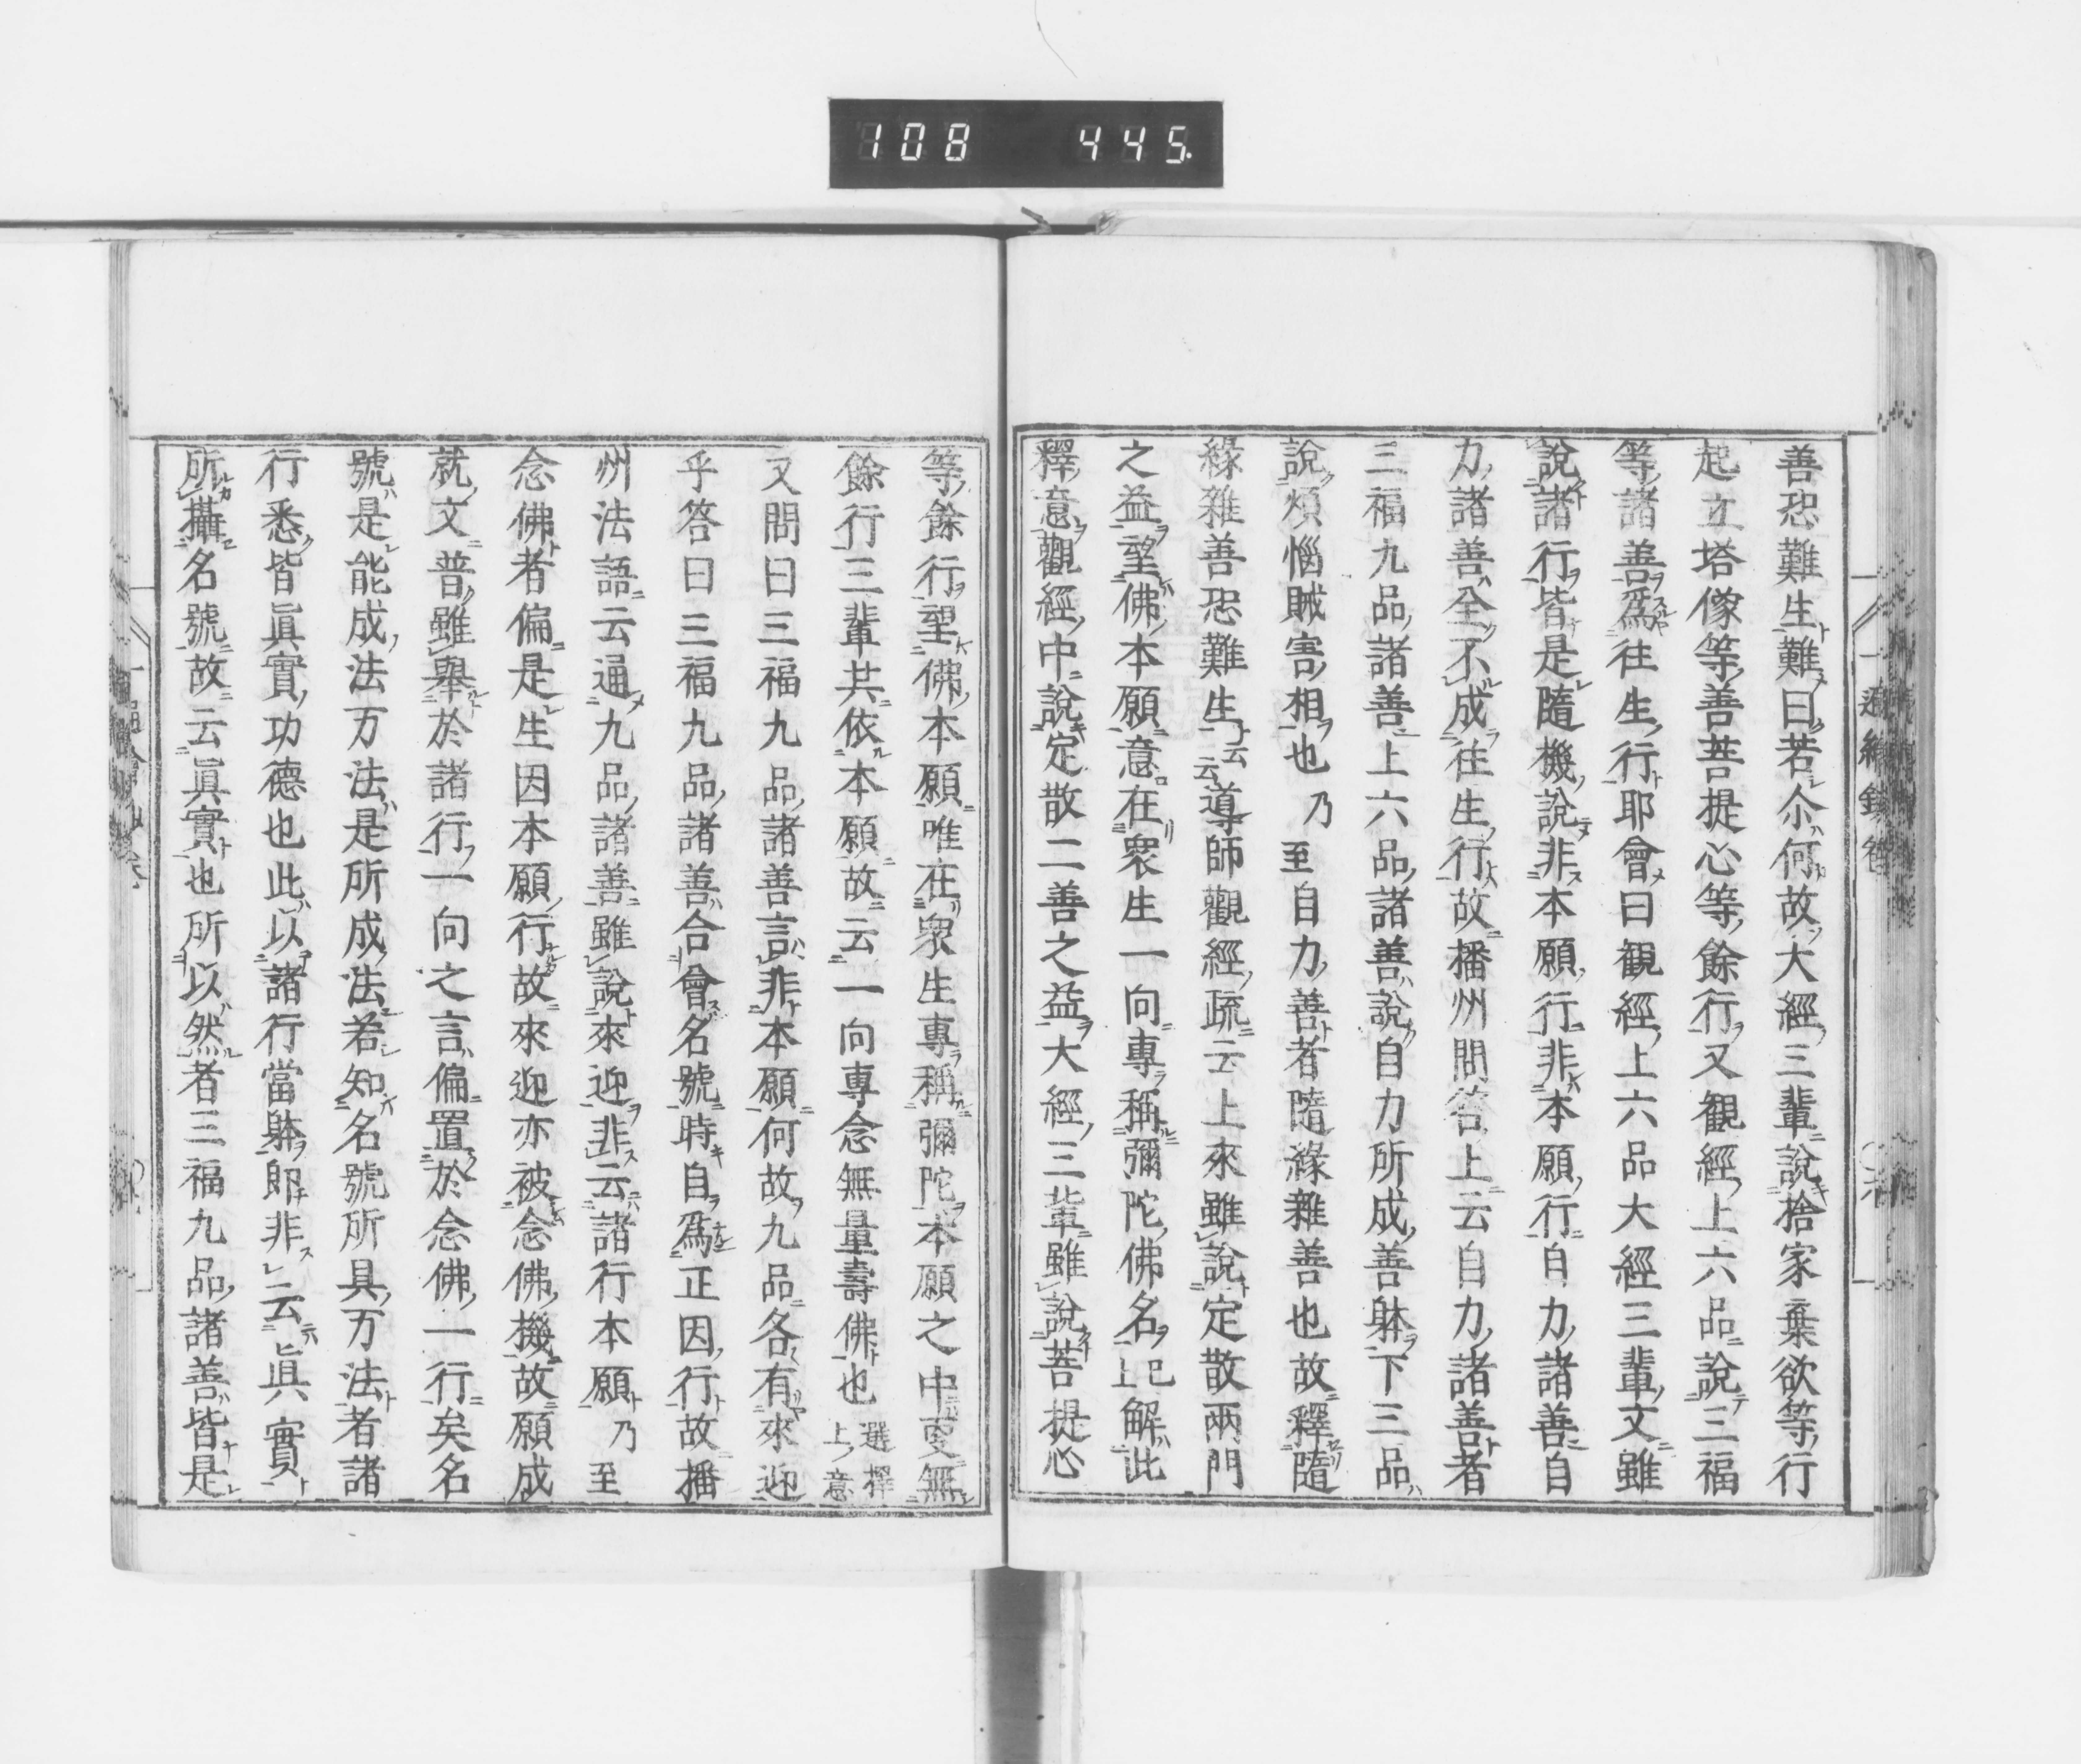 108 445.
善恐難生難曰若尒何故大經三輩說捨家棄欲等行
起立塔像等善菩提心等餘行又観經上六品說三福
等諸善爲往生行耶會曰観經上六品大經三輩文雖
說諸行皆是隨機說非本願行非本願行自力諸善自
力諸善全不成往生行故播州問答上云自力諸善者
三福九品諸善上六品諸善說自力所成善躰下三品
說煩惱賊害相也乃至自力善者隨緣雜善也故釋隨
緣雜善恐難生云云導師觀經疏云上來雖說定散兩門
之益望佛本願意在衆生一向專稱彌陀佛名已上解此
釋意觀經中說定散二善之益大經三輩雖說菩提心
等餘行望佛本願唯在衆生專稱彌陀本願之中更無
餘行三輩共依本願故云一向專念無量壽佛也選擇上意
又問曰三福九品諸善言非本願何故九品各有來迎
乎答曰三福九品諸善合會名號時自爲正因行故播
州法語云通九品諸善雖說來迎非云諸行本願乃至
念佛者偏是生因本願行故來迎亦被念佛機故願成
就文普雖舉於諸行一向之言偏置於念佛一行矣名
號是能成法万法是所成法若知名號所具万法者諸
行悉皆眞實功德也此以諸行當躰卽非云眞實
所攝名號故云眞實也所以然者三福九品諸善皆是